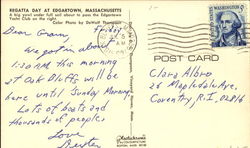 REGATTA DAY AT EDGARTOWN, MASSACHUSETTS
A big yawl under full sail about to pass the Edgartown
Yacht Club on the right.
Color Photo by DeWolf Thompson
Dear Gram, Friday
We got in about
1:30 AM this morning
at Oak Bluffs. Will be
here until Sunday Morning.
Lots of boats and
thousands of people.
Love
WASHINGTON
POST CARD
Clara Albro
26 Mapledale Ave.
Coventry, R.I. 02816